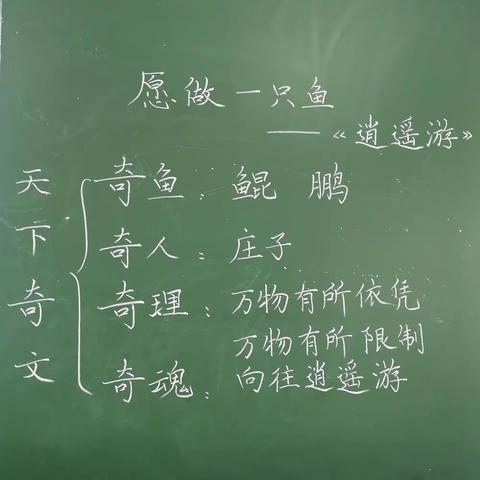 愿做一只鱼
——《逍遥游》
天下奇文
奇鱼：鲲 鹏
奇人：庄子
奇理：万物有所依凭
万物有所限制
奇魂：向往逍遥游